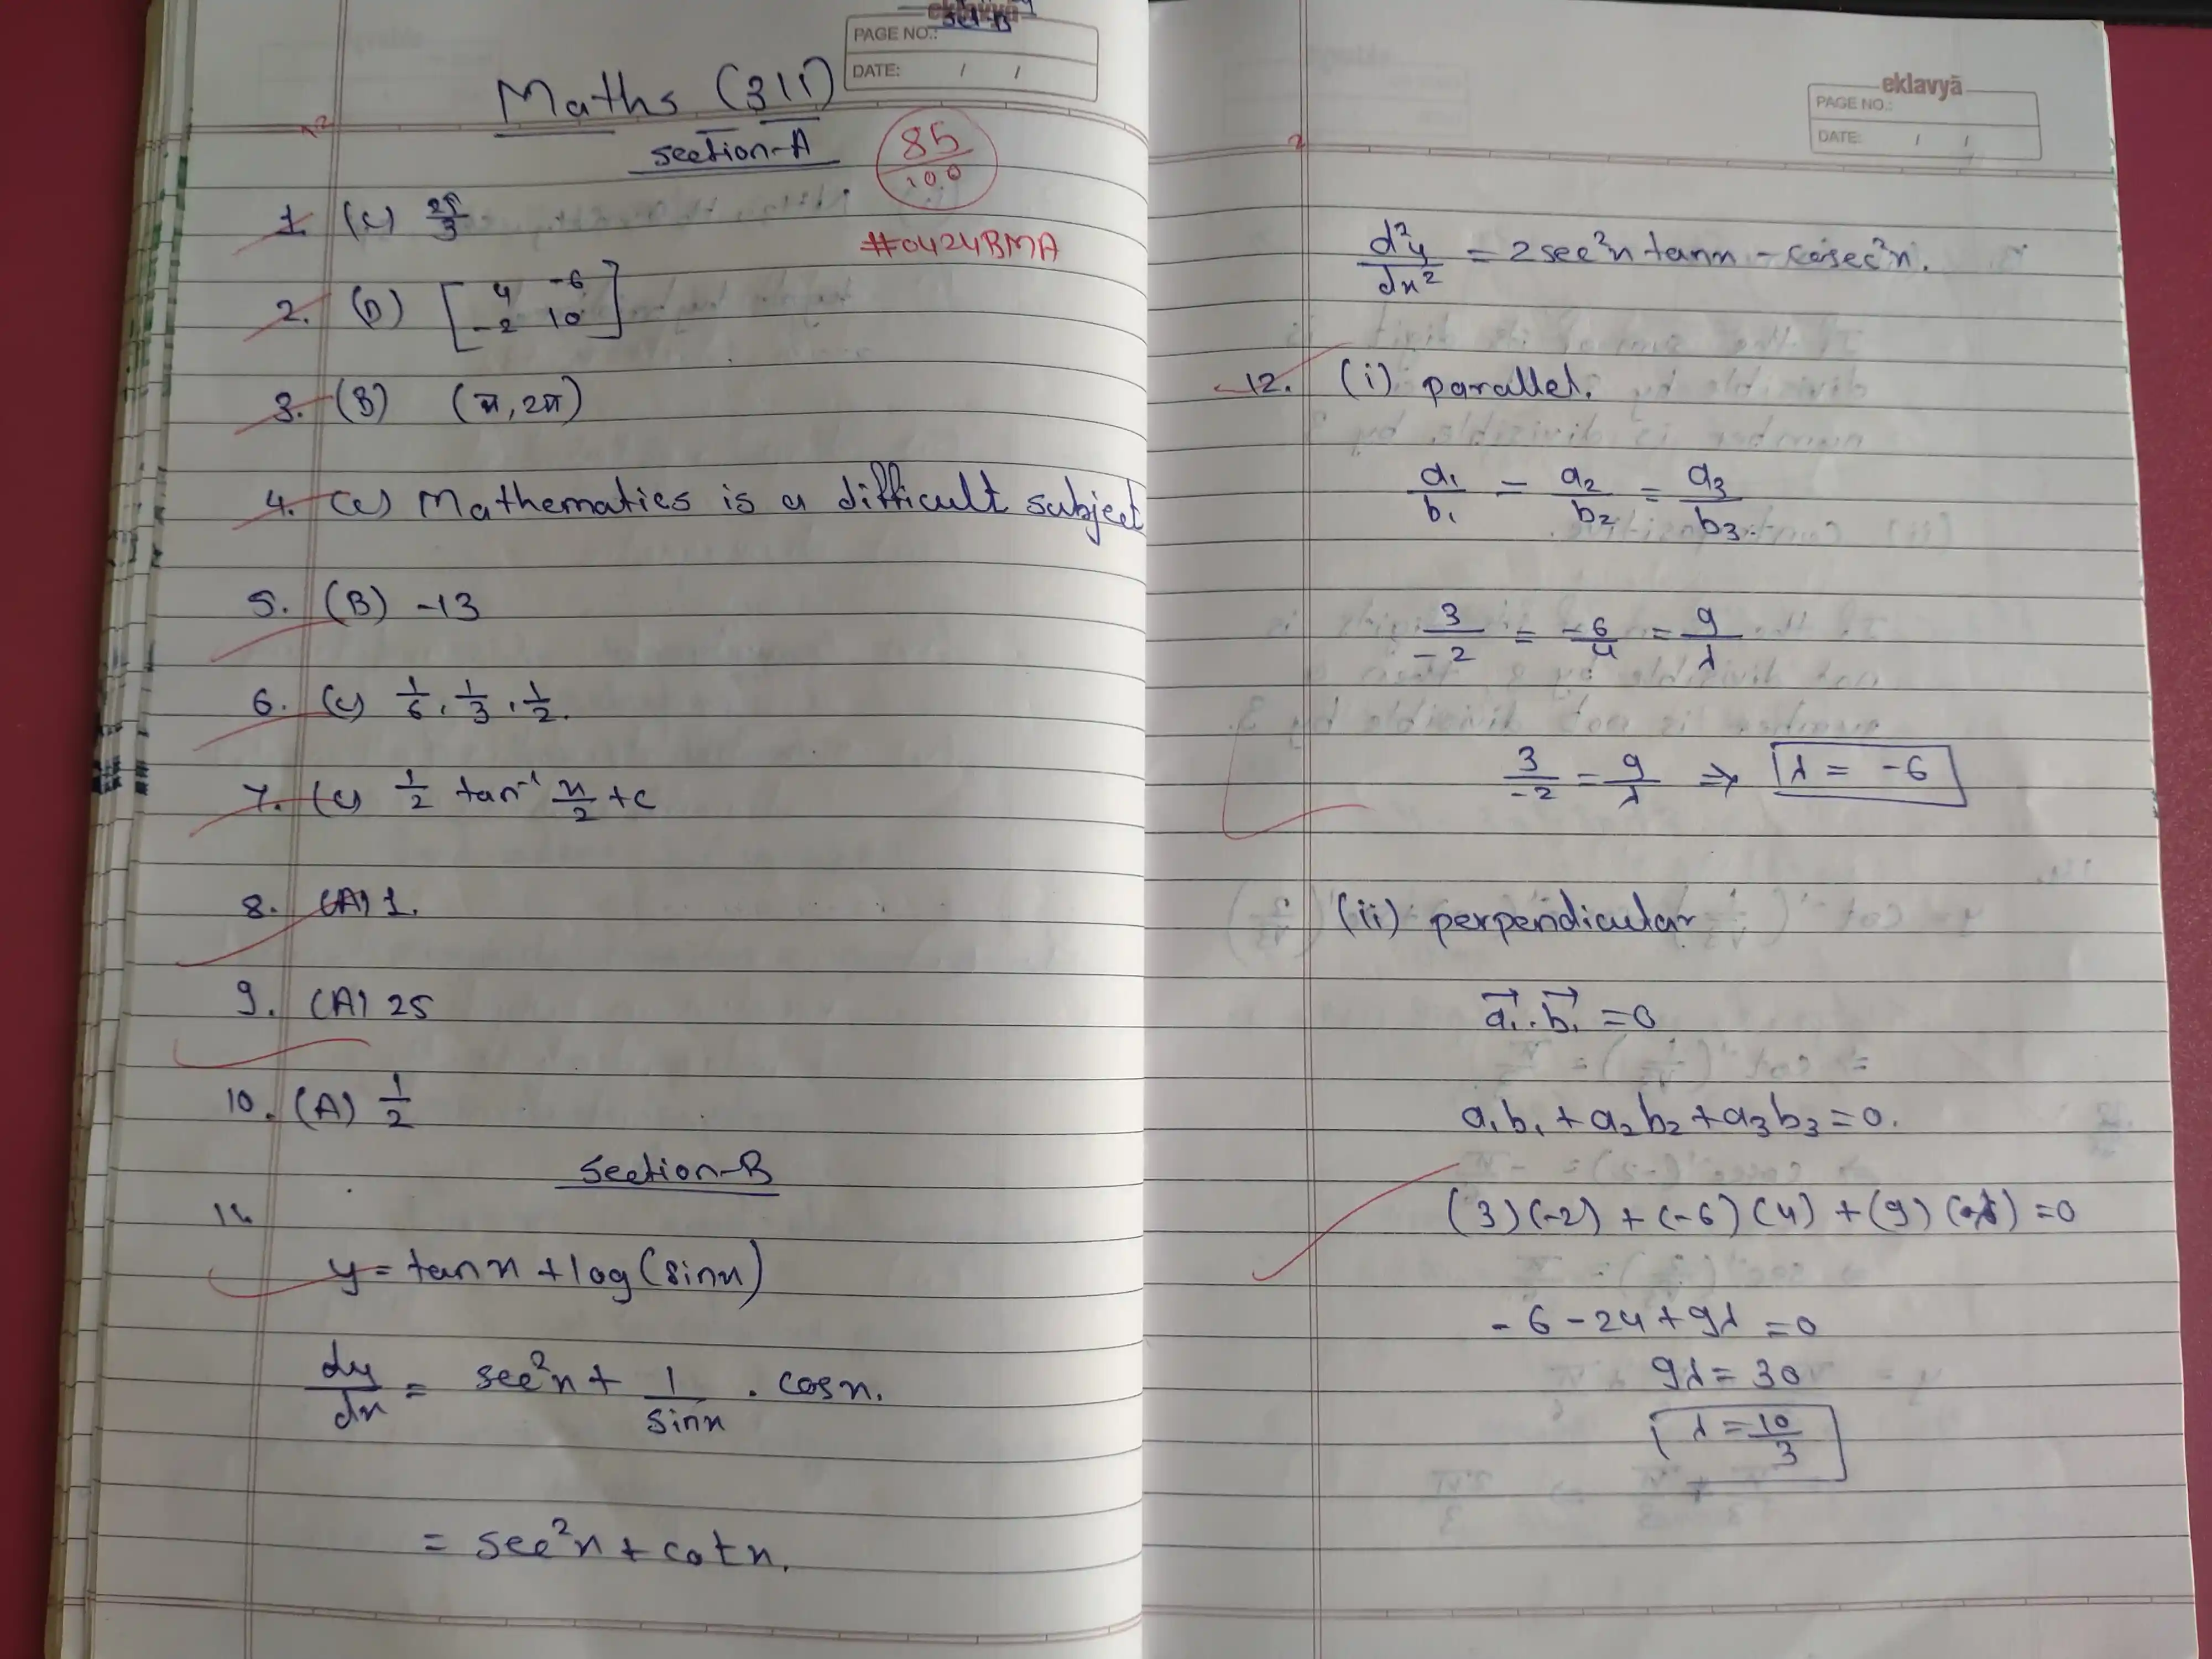 eklavyā
Set-B
PAGE NO.:
DATE: / /
Maths (311)
Section-A
85/100
#0424BMA
1. (C) 2π/3
2. (D) [4 -6
-2 10]
3. (B) (π, 2π)
4. (C) Mathematics is a difficult subject
5. (B) -13
6. (C) 1/6, 1/3, 1/2.
7. (C) 1/2 tan⁻¹ x/2 + c
8. (A) 1.
9. (A) 25
10. (A) 1/2
Section-B
11.
y = tan x + log(sin x)
dy/dx = sec²x + 1/sin x . cos x.
= sec²x + cot x.
eklavyā
PAGE NO.:
DATE: / /
d²y/dx² = 2 sec²x tan x - cosec²x.
12. (i) parallel.
a₁/b₁ = a₂/b₂ = a₃/b₃.
3/-2 = -6/4 = 9/λ
3/-2 = 9/λ ⇒ λ = -6
(ii) perpendicular
a₁⃗ . b₁⃗ = 0
a₁b₁ + a₂b₂ + a₃b₃ = 0.
(3)(-2) + (-6)(4) + (9)(λ) = 0
- 6 - 24 + 9λ = 0
9λ = 30
λ = 10/3